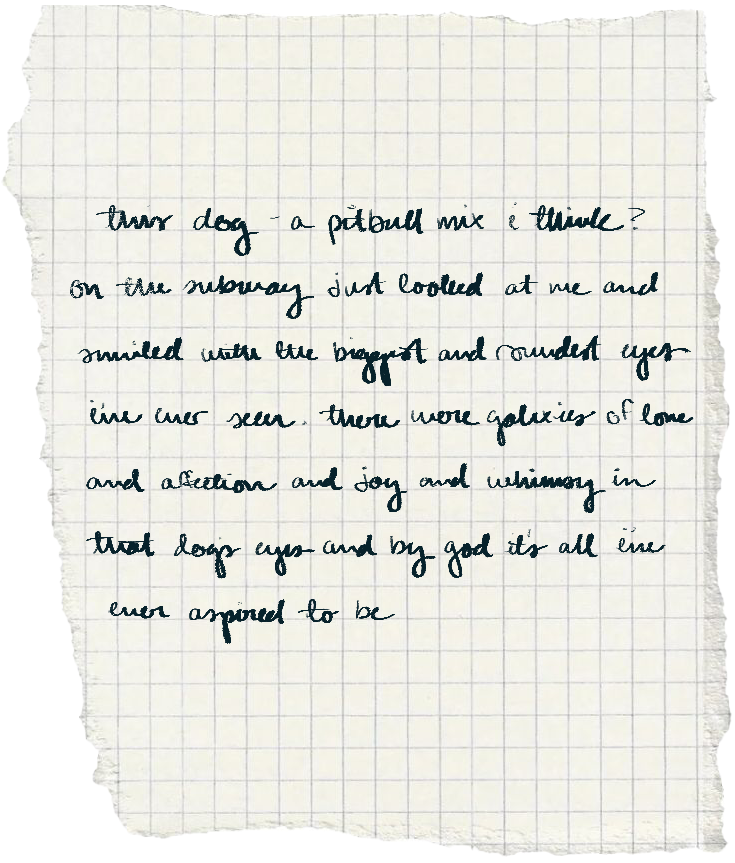 this dog - a pitbull mix i think?
on the subway just looked at me and
smiled with the biggest and roundest eyes
i've ever seen. there were galaxies of love
and affection and joy and whimsy in
that dogs eyes and by god it's all i've
ever aspired to be